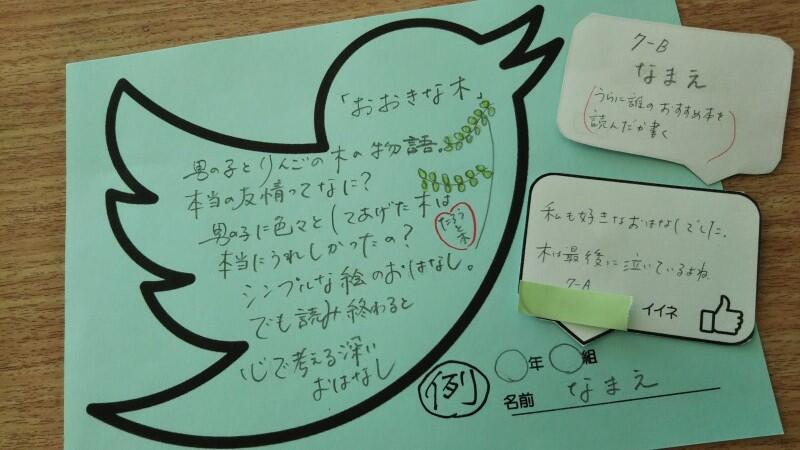 「おおきな木」
男の子とりんごの木の物語。
本当の友情ってなに?
男の子に色々としてあげた木は
本当にうれしかったの?
シンプルな絵のおはなし。
でも読み終わると
心で考える深い
おはなし
例
年 組
名前 なまえ
7-B
なまえ
(うらに誰のおすすめ本を
読んだか書く)
私も好きなおはなしでした。
木は最後に泣いているよね
7-A
イイネ